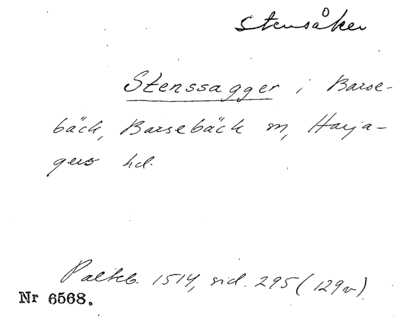 Stensåker
Stenssagger i Barse-
bäck, Barsebäck sn, Harja-
gers hd.
Palteb. 1514, sid. 295 (129v)
Nr 6568.